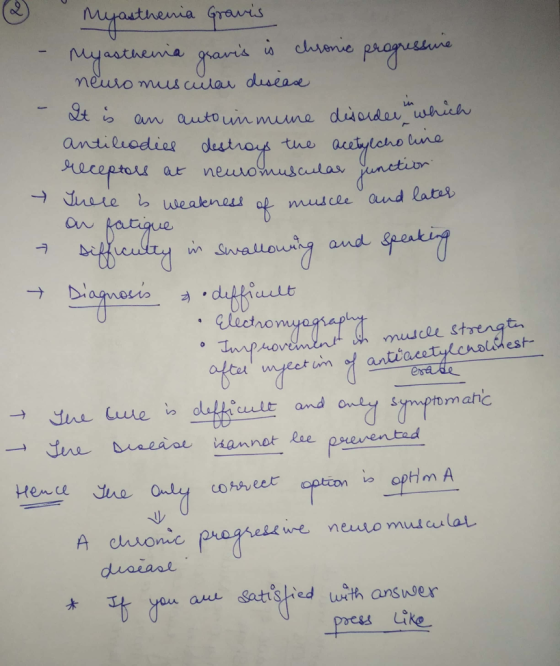 2
Myasthenia Gravis
- Myasthenia gravis is chronic progressive
neuromuscular disease
- It is an autoimmune disorder in which
antibodies destroys the acetylcholine
receptors at neuromuscular junction
→ There is weakness of muscle and later
on fatigue
→ Difficulty in swallowing and speaking
→ Diagnosis ⇒ • difficult
• Electromyography
• Improvement in muscle strength
after injection of antiacetylcholinest-
erase
→ The Cure is difficult and only symptomatic
→ The Disease cannot be prevented
Hence The only correct option is option A
⇓
A chronic progressive neuromuscular
disease
* If you are satisfied with answer
press Like